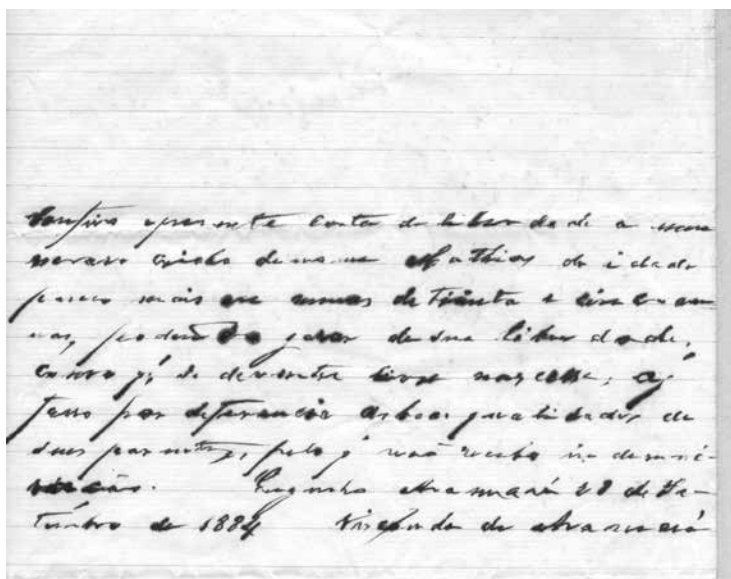 Confiro apresente Carta de liberdade a meu
escravo crioulo de nome Mathias de idade
pouco mais ou menos de trinta e cinco an
nos, podendo gozar de sua liberdade,
como q' se de ventre livre nascesse, q'
faço por deferencia as boas qualidades de
seus parentes, pelo q' não recebo indemni-
sação. Engenho Aramaré 28 de Se-
tembro de 1884 Visconde de Aramaré